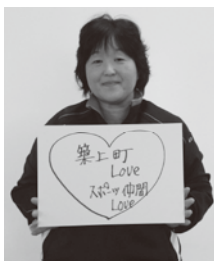 築上町
Love
スポーツ仲間
Love